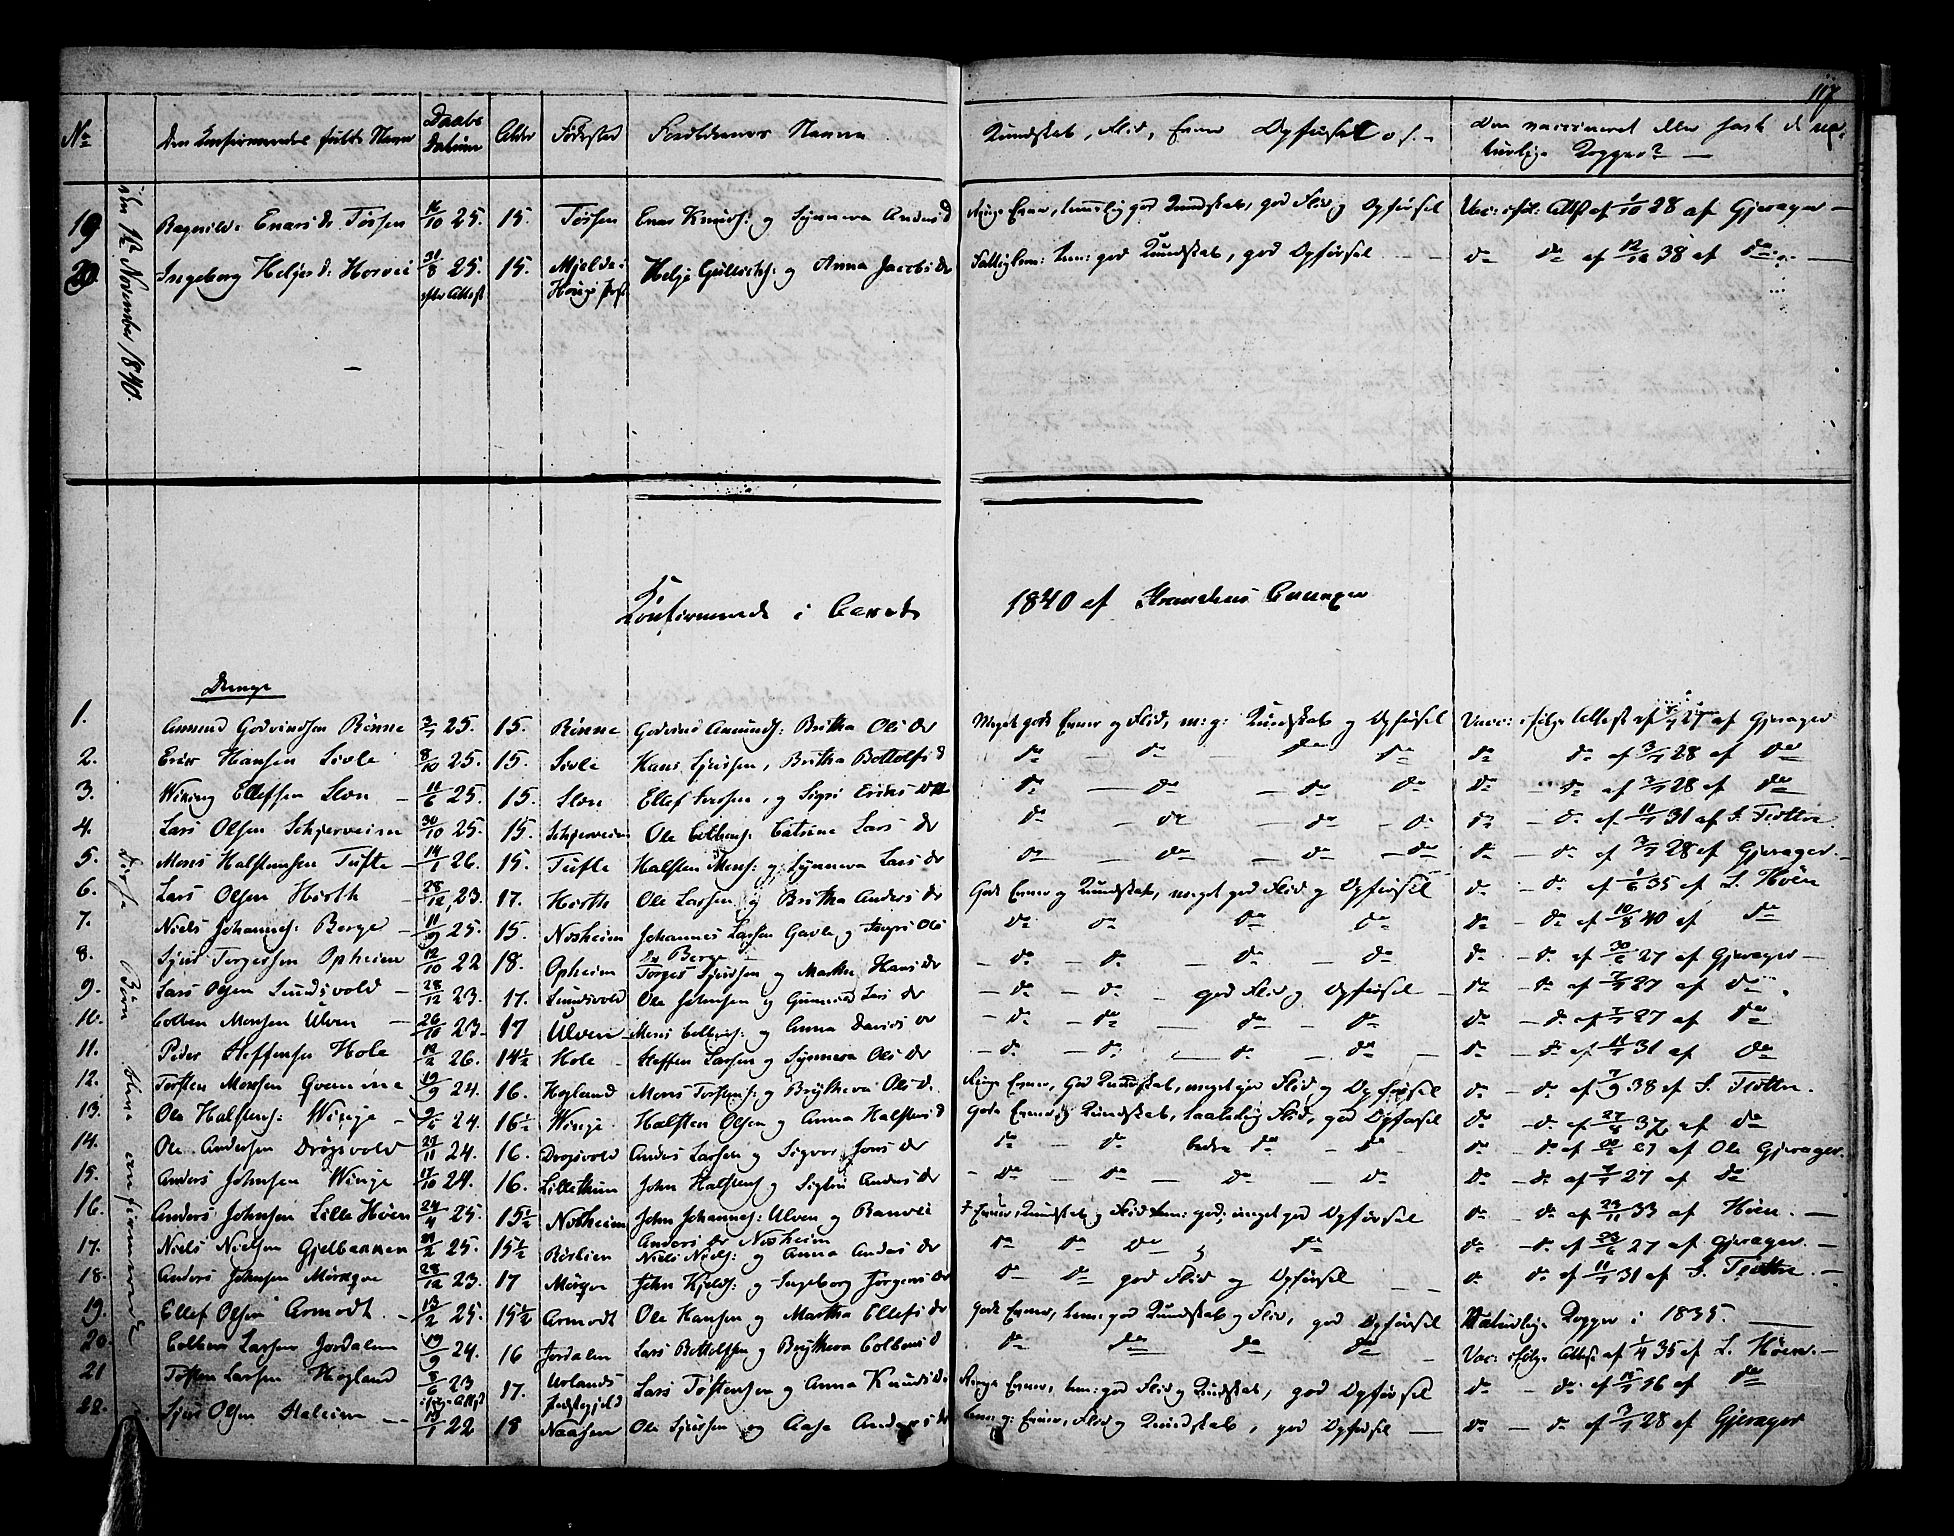 117
No Den Confirmendes fulde Navn Daabs Datum Alder Fødested Forældrenes Navne Kundskab, Flid, Evner Opførsel o. s. Om vaccineret eller havt de naturlige Kopper?
den 1ste November 1840.
19 Ragnilde Enars dr Torsen 16/10 25. 15. Torsen Enar Knuds: og Synneva Anders d Ringe Evner, temmelig god Kundskab, god Flid og Opførsel Vac: iføl: Attst af 1/10 28 af Gjerager
20. Ingeborg Helges dr Horvei 31/8 25. efter Attest 15. Mjelde i Hougs Helje Gulliks: og Anna Jacobs dr tem: god Kundskab, god Opførsel do do af 12/10 38 af do
Konfirmerede i Aaret 1840 af Annexer
Drenge
disse Børn bleve confirmerede
1. Amund Godvindsen Rønne 3/7 25. 15. Rønne Godvind Amunds: Britha Ols dr Meget gode Evner og Flid, m: g: Kundskab og Opførsel Vacc: ifølge Attest af 27 af Gjerager
2. Erik Hansen Sivle 8/10 25. 15. Sivle Hans Sjursen, Britha Bottolfs d do do do do do do af 3/7 28 af do
3. Wiking Ellefsen Sløn 11/6 25. 15. Sløn Ellef og Sigri Eriks dtr do do do do do do af 3/7 28 af do
4. Lars Olsen Schjerveim 30/10 25. 15. Schjerveim Ole Catrine Lars dr do do do do do do af 11/7 31 af S. Trotten.
5. Mons Halstensen Tufte 14/1 26. 15. Tufte Halsten Mons: og Synneva Lars dr do do do do do do af 3/7 28 af Gjerager.
6. Lars Olsen Hirth 28/12 23. 17. Hirth Ole Larsen og Britha Anders dr Gode Evner og Kundskab, meget god Flid og Opførsel do do af 1/6 35 af L. Høen
7. Niels Johannes: Berge 11/9 25. 15. Nosheim Johannes Larsen Gavle og Ols dr Berge do do do do do do af 10/8 40 af do
8. Sjur Torgersen Opheim 12/10 22 18. Opheim Torger Sjursen og Martha Hans dr do do do do do do af 30/6 27 af Gjerager
9. Lars Olsen Sundsvold 28/12 23. 17. Sundsvold Ole Johnsen og Gunvild Lars dr do do god Flid og Opførsel do do af 7/7 27 af do
10. Colben Monsen Ulven 26/10 23 17 Ulven Mons Colbens: og Anna Davids dr do do do do do do af 7/7 27 af do
11. Peder Steffensen Hole 12/2 26. 14½ Hole Steffen Larsen og Synneva Ols dr do do do do do do af 11/7 31 af do
12. Torsten Monsen 19/9 24. 16. Hogland Mons Torstens: og Brytheva Ols d. Ringe Evner, God Kundskab, meget god Flid og Opførsel do do af 7/9 38 af S. Trotten.
13. Ole Halstens: Winje 24. 16½ Winje Halsten Olsen og Anna Halstens d Gode Evner og Kundskab, Flid, god Opførsel do do af 27/8 37 af do
14. Ole Andersen Drøgsvold 29/11 24. 16. Drogsvold Anders Larsen og Sigver Jons dr do do bedre do do do do af 20/6 27 af Ole Gjerager.
15. Anders Johnsen Winje 17/10 24. 16. Lillethun John Halstens: og Siglru Anders dr do do do do do do af 7/7 27 af do
16. Anders Johnsen Lille Høen 24/4 25. 15½ Nosheim John Johannes: Ulven og Ranvei Anders dr Nosheim Evner, Kundskab og Flid tem: god, meget god Opførsel do do af 29/11 33 af Høen.
17. Niels Nielsen Gjelbakken 21/2 25. 15½ Niels Niels: og Anna Anders dr do do do do do do af 23/6 27 af Gjerager.
18. Anders Johnsen Mørqve 28/12 23. 17 Mørqve John Kjelds: og Ingeborg Jørgens dr do do god Flid og Opførsel do do af 11/7 31 af S. Trotten.
19. Ellef Olsen Armodt 13/2 25. 15½ Armodt Ole Hansen og Martha Ellefs dr Gode Evner, tem: god Kundskab og Flid, god Opførsel Naturlige Kopper i 1835.
20. Colben Larsen Jordalen 19/9 24. 16 Jordalen Lars Bottolfsen og Brytheva Colbens d do do do do Vac: ifølge Attst af 1/4 35 af L. Høen.
21 Tosten Larsen Høgland 8/6 23 ifølge Attst 17. Urlands Præstegjeld Lars Tostensen og Anna Knuds dr Ringe Evner, tem: god Flid og Kundskab, god Opførsel do do af 16 af do
22. Sjur Olsen Staleim 19/1 22 18 Naasen Ole Sjursen og Aase Anders dr tem: g: Evner, Flid og Kundskab, god Opførsel do do af 3/7 28 af Gjerager